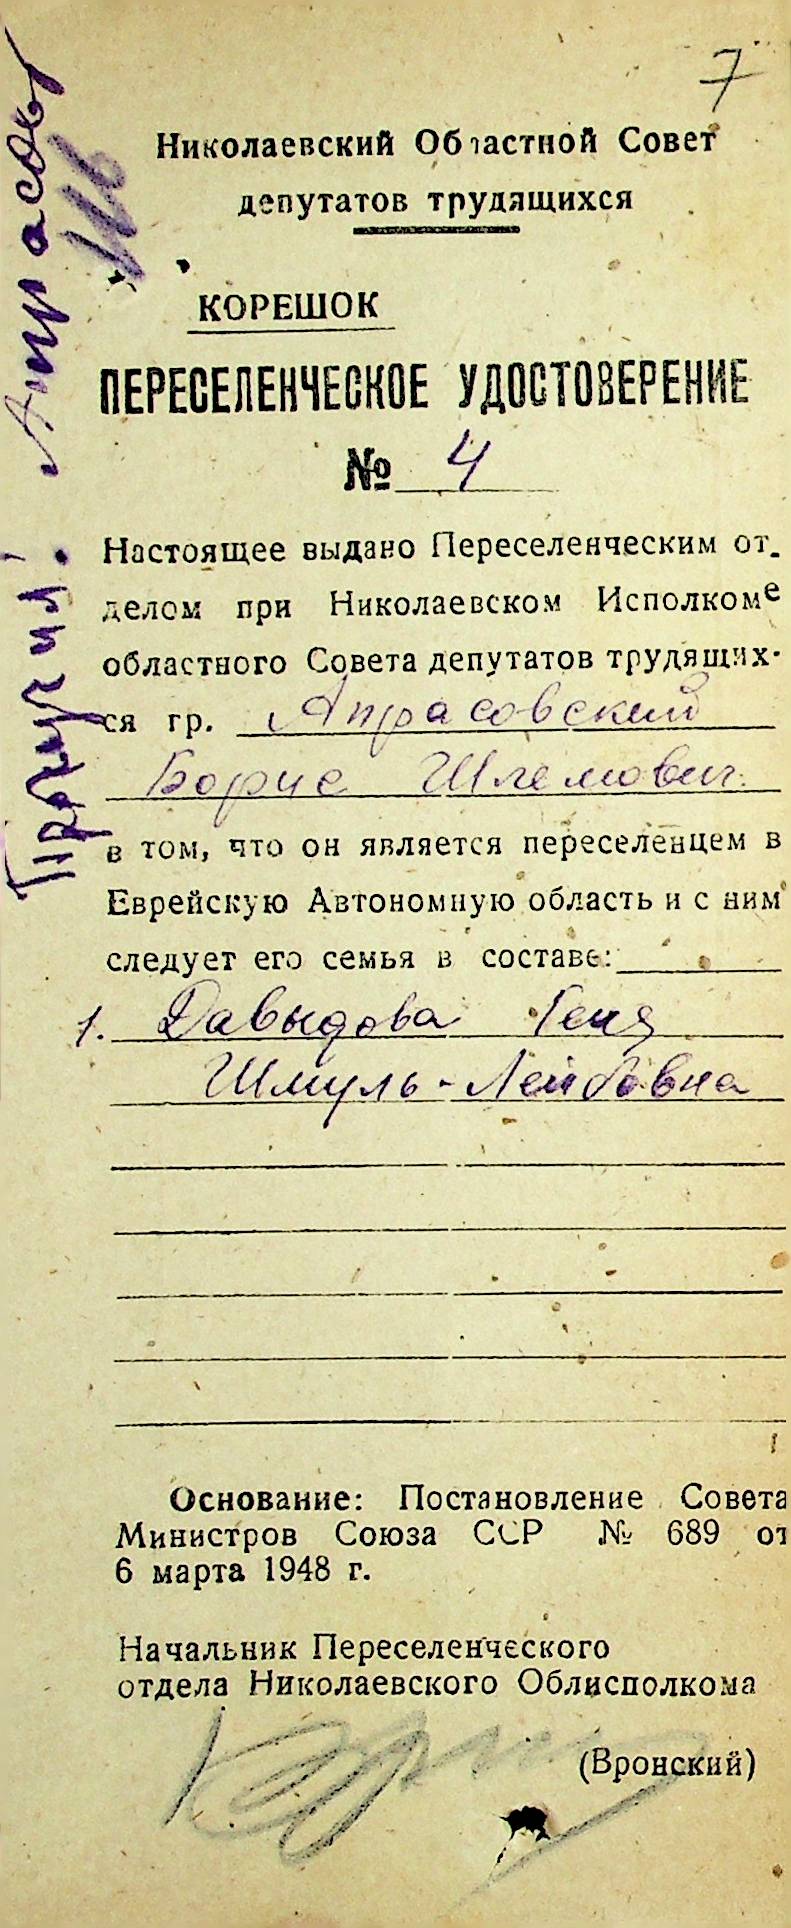 7
Николаевский Областной Совет
депутатов трудящихся
КОРЕШОК
ПЕРЕСЕЛЕНЧЕСКОЕ УДОСТОВЕРЕНИЕ
№ 4
Настоящее выдано Переселенческим от-
делом при Николаевском Исполкоме
областного Совета депутатов трудящих-
ся гр. Апрасовский
Борис Шлемович
в том, что он является переселенцем в
Еврейскую Автономную область и с ним
следует его семья в составе:
1. Давыдова Геня
Шмуль-Лейбовна
Основание: Постановление Совета
Министров Союза ССР № 689 от
6 марта 1948 г.
Начальник Переселенческого
отдела Николаевского Облисполкома
(Вронский)
Получил: Апрасов